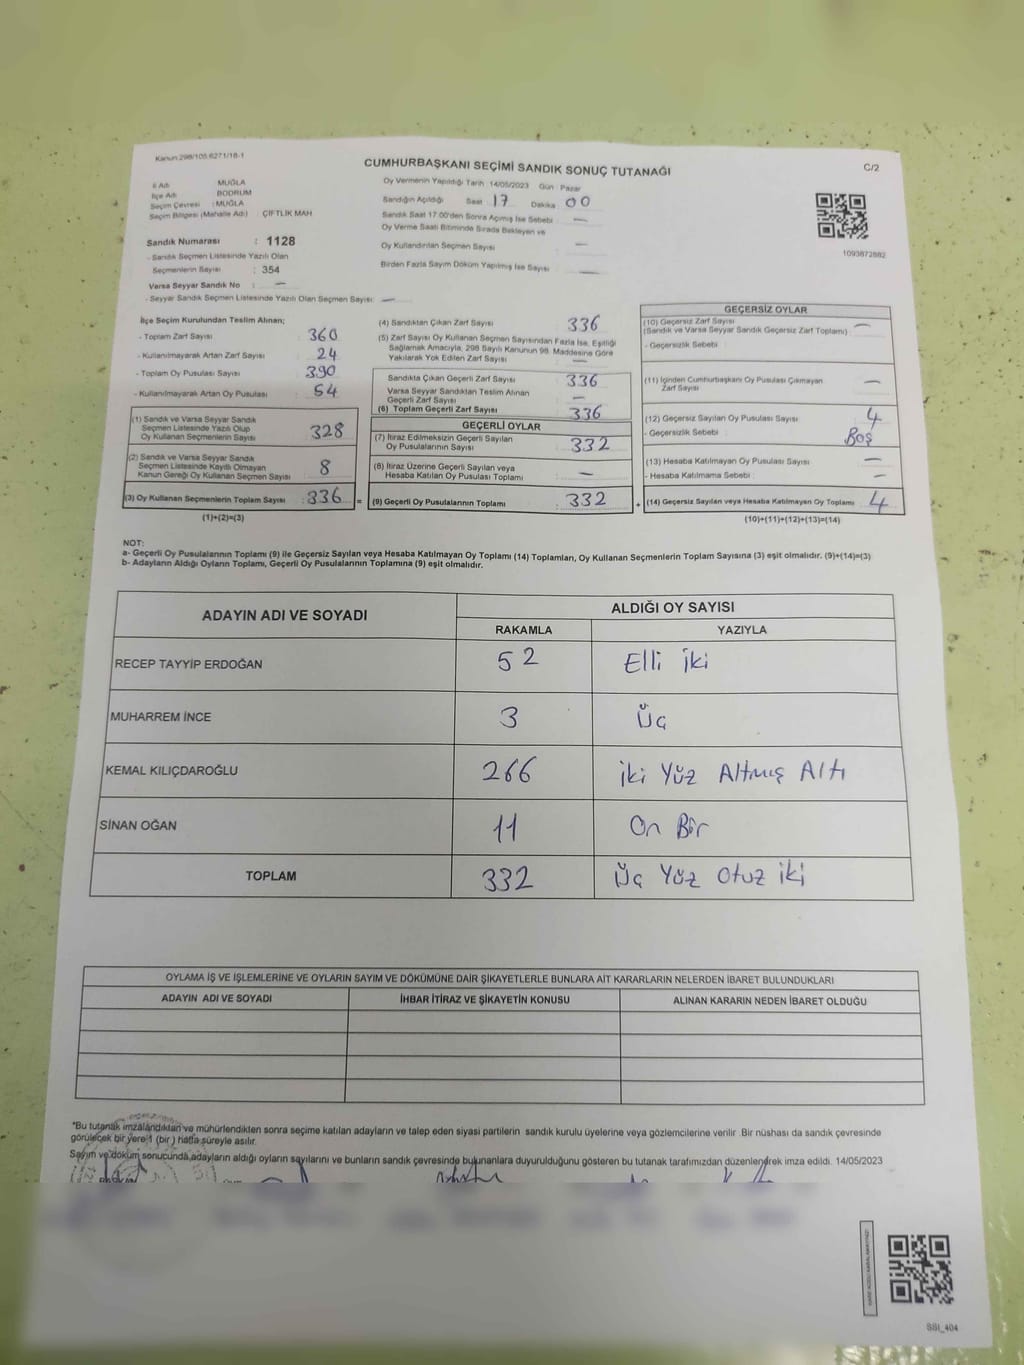 Kanun:298/105.6271/18-1
CUMHURBAŞKANI SEÇİMİ SANDIK SONUÇ TUTANAĞI
C/2
İl Adı MUĞLA
İlçe Adı BODRUM
Seçim Çevresi : MUĞLA
Seçim Bölgesi (Mahalle Adı) ÇİFTLİK MAH
Oy Vermenin Yapıldığı Tarih :14/05/2023 Gün : Pazar
Sandığın Açıldığı Saat 17 Dakika 00
Sandık Saat 17.00'den Sonra Açılmış İse Sebebi —
Oy Verme Saati Bitiminde Sırada Bekleyen ve
Oy Kullandırılan Seçmen Sayısı —
Birden Fazla Sayım Döküm Yapılmış İse Sayısı —
1093872882
Sandık Numarası : 1128
- Sandık Seçmen Listesinde Yazılı Olan
Seçmenlerin Sayısı : 354
Varsa Seyyar Sandık No : —
- Seyyar Sandık Seçmen Listesinde Yazılı Olan Seçmen Sayısı: —
İlçe Seçim Kurulundan Teslim Alınan;
- Toplam Zarf Sayısı : 360
- Kullanılmayarak Artan Zarf Sayısı : 24
- Toplam Oy Pusulası Sayısı : 390
- Kullanılmayarak Artan Oy Pusulası : 54
(1) Sandık ve Varsa Seyyar Sandık
Seçmen Listesinde Yazılı Olup
Oy Kullanan Seçmenlerin Sayısı : 328
(2) Sandık ve Varsa Seyyar Sandık
Seçmen Listesinde Kayıtlı Olmayan
Kanun Gereği Oy Kullanan Seçmen Sayısı : 8
(3) Oy Kullanan Seçmenlerin Toplam Sayısı : 336 =
(1)+(2)=(3)
(4) Sandıktan Çıkan Zarf Sayısı 336
(5) Zarf Sayısı Oy Kullanan Seçmen Sayısından Fazla İse, Eşitliği
Sağlamak Amacıyla, 298 Sayılı Kanunun 98. Maddesine Göre
Yakılarak Yok Edilen Zarf Sayısı —
Sandıkta Çıkan Geçerli Zarf Sayısı : 336
Varsa Seyyar Sandıktan Teslim Alınan
Geçerli Zarf Sayısı : —
(6) Toplam Geçerli Zarf Sayısı : 336
GEÇERLİ OYLAR
(7) İtiraz Edilmeksizin Geçerli Sayılan
Oy Pusulalarının Sayısı : 332
(8) İtiraz Üzerine Geçerli Sayılan veya
Hesaba Katılan Oy Pusulası Toplamı : —
(9) Geçerli Oy Pusulalarının Toplamı : 332 +
GEÇERSİZ OYLAR
(10) Geçersiz Zarf Sayısı
(Sandık ve Varsa Seyyar Sandık Geçersiz Zarf Toplamı) : —
- Geçersizlik Sebebi :
(11) İçinden Cumhurbaşkanı Oy Pusulası Çıkmayan
Zarf Sayısı —
(12) Geçersiz Sayılan Oy Pusulası Sayısı : 4
- Geçersizlik Sebebi : Boş
(13) Hesaba Katılmayan Oy Pusulası Sayısı : —
- Hesaba Katılmama Sebebi : —
(14) Geçersiz Sayılan veya Hesaba Katılmayan Oy Toplamı : 4
(10)+(11)+(12)+(13)=(14)
NOT:
a- Geçerli Oy Pusulalarının Toplamı (9) ile Geçersiz Sayılan veya Hesaba Katılmayan Oy Toplamı (14) Toplamları, Oy Kullanan Seçmenlerin Toplam Sayısına (3) eşit olmalıdır. (9)+(14)=(3)
b- Adayların Aldığı Oyların Toplamı, Geçerli Oy Pusulalarının Toplamına (9) eşit olmalıdır.
ADAYIN ADI VE SOYADI ALDIĞI OY SAYISI
RAKAMLA YAZIYLA
RECEP TAYYİP ERDOĞAN 52 Elli iki
MUHARREM İNCE 3 Üç
KEMAL KILIÇDAROĞLU 266 iki Yüz Altmış Altı
SİNAN OĞAN 11 On Bir
TOPLAM 332 Üç Yüz Otuz iki
OYLAMA İŞ VE İŞLEMLERİNE VE OYLARIN SAYIM VE DÖKÜMÜNE DAİR ŞİKAYETLERLE BUNLARA AİT KARARLARIN NELERDEN İBARET BULUNDUKLARI
ADAYIN ADI VE SOYADI İHBAR İTİRAZ VE ŞİKAYETİN KONUSU ALINAN KARARIN NEDEN İBARET OLDUĞU
*Bu tutanak imzalandıktan ve mühürlendikten sonra seçime katılan adayların ve talep eden siyasi partilerin sandık kurulu üyelerine veya gözlemcilerine verilir. Bir nüshası da sandık çevresinde
görülecek bir yere 1 (bir) hafta süreyle asılır.
Sayım ve döküm sonucunda,adayların aldığı oyların sayılarını ve bunların sandık çevresinde bulunanlara duyurulduğunu gösteren bu tutanak tarafımızdan düzenlenerek imza edildi. 14/05/2023
SSI_404